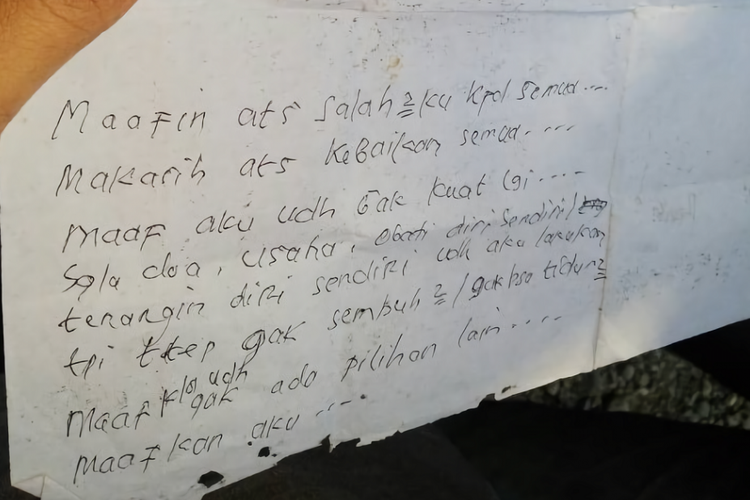 Maafin ats salah²ku kpd semua....
Makasih ats kebaikan semua....
maaf aku udh gak kuat lgi....
Sgla doa, usaha, obati diri sendiri/
tenangin diri sendiri udh aku lakukan
tpi ttep gak sembuh²/gak bsa tidur²
maaf klo udh gak ada pilihan lain....
maafkan aku....